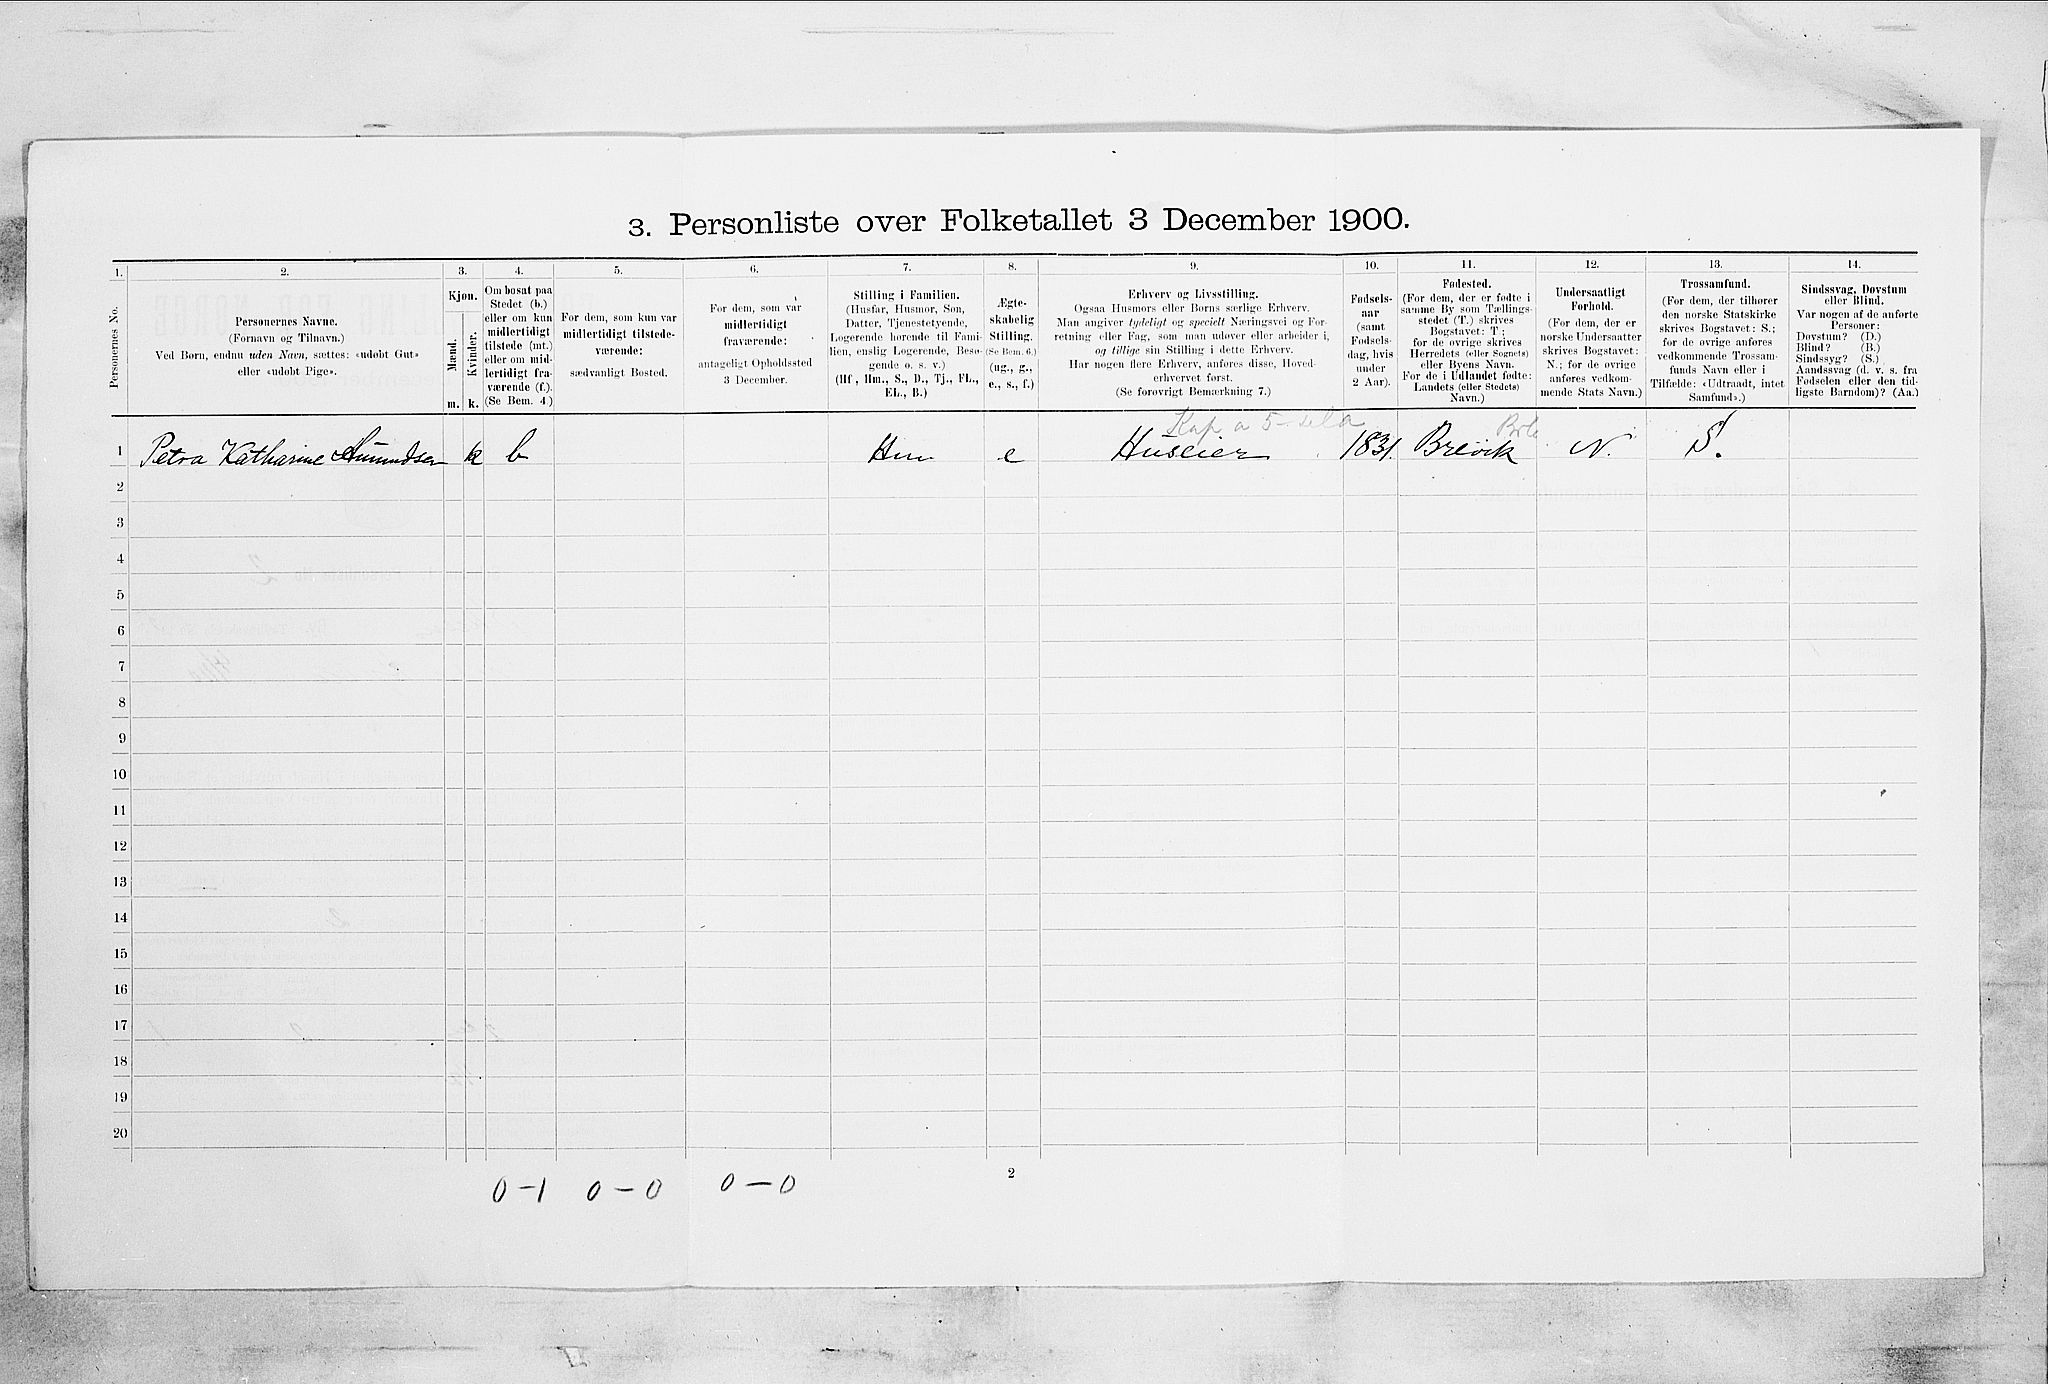 3. Personliste over Folketallet 3 December 1900.
1. 2. 3. 4. 5. 6. 7. 8. 9. 10. 11. 12. 13. 14.
Personernes No.
Personernes Navne.
(Fornavn og Tilnavn.)
Ved Børn, endnu uden Navn, sættes: «udøbt Gut»
eller «udøbt Pige».
Kjøn.
Mænd.
Kvinder.
m. k.
Om bosat paa
Stedet (b.)
eller om kun
midlertidigt
tilstede (mt.)
eller om mid-
lertidigt fra-
værende (f.).
(Se Bem. 4.)
For dem, som kun var
midlertidigt tilstede-
værende:
sædvanligt Bosted.
For dem, som var
midlertidigt
fraværende:
antageligt Opholdssted
3 December.
Stilling i Familien.
(Husfar, Husmor, Søn,
Datter, Tjenestetyende,
Logerende hørende til Fami-
lien, enslig Logerende, Besø-
gende o. s. v.)
(Hf., Hm., S., D., Tj., FL.,
EL., B.)
Ægte-
skabelig
Stilling.
(Se Bem. 6.)
(ug., g.,
e., s., f.)
Erhverv og Livsstilling.
Ogsaa Husmors eller Børns særlige Erhverv.
Man angiver tydeligt og specielt Næringsvei og For-
retning eller Fag, som man udøver eller arbeider i,
og tillige sin Stilling i dette Erhverv.
Har nogen flere Erhverv, anføres disse, Hoved-
erhvervet først.
(Se forøvrigt Bemærkning 7.)
Fødsels-
aar
(samt
Fødsels-
dag, hvis
under
2 Aar).
Fødested.
(For dem, der er fødte i
samme By som Tællings-
stedet (T.) skrives
Bogstavet: T;
for de øvrige skrives
Herredets (eller Sognets)
eller Byens Navn.
For de i Udlandet fødte:
Landets (eller Stedets)
Navn.)
Undersaatligt
Forhold.
(For dem, der er
norske Undersaatter
skrives Bogstavet:
N.; for de øvrige
anføres vedkom-
mende Stats Navn.)
Trossamfund.
(For dem, der tilhører
den norske Statskirke
skrives Bogstavet: S.;
for de øvrige anføres
vedkommende Trossam-
funds Navn eller i
Tilfælde: «Udtraadt, intet
Samfund».)
Sindssvag, Døvstum
eller Blind.
Var nogen af de anførte
Personer:
Døvstum? (D.)
Blind? (B.)
Sindssyg? (S.)
Aandssvag (d. v. s. fra
Fødselen eller den tid-
ligste Barndom)? (Aa.)
Kap a 5
1 Petra Katharine Amundsen k b Hm e Huseier 1831. Brevik N. S.
2
3
4
5
6
7
8
9
10
11
12
13
14
15
16
17
18
19
20
0 - 1 0 - 0 0 - 0
2